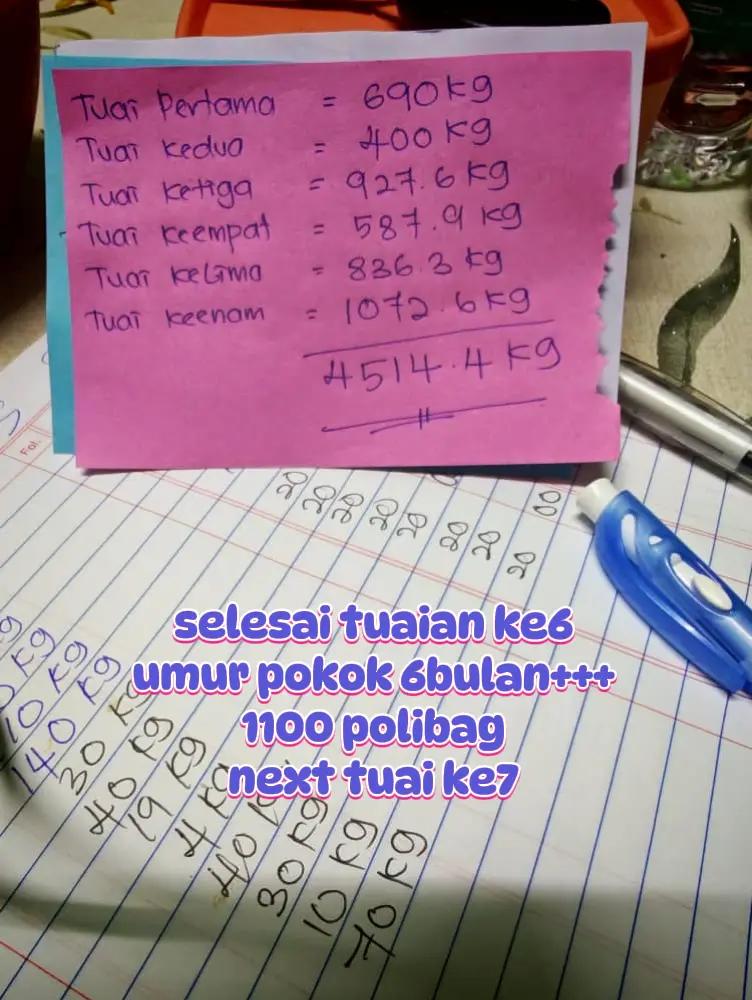 Tuai Pertama = 690 kg
Tuai kedua = 400 kg
Tuai ketiga = 927.6 kg
Tuai keempat = 587.9 kg
Tuai kelima = 836.3 kg
Tuai keenam = 1072.6 kg
4514.4 kg
Fol.
20
20
20
20
20
20
20
20
00
selesai tuaian ke6
umur pokok 6bulan+++
1100 polibag
next tuai ke7
kg
kg
kg
140 kg
30 kg
40 kg
19 kg
4 kg
40
30 kg
10 kg
70 kg